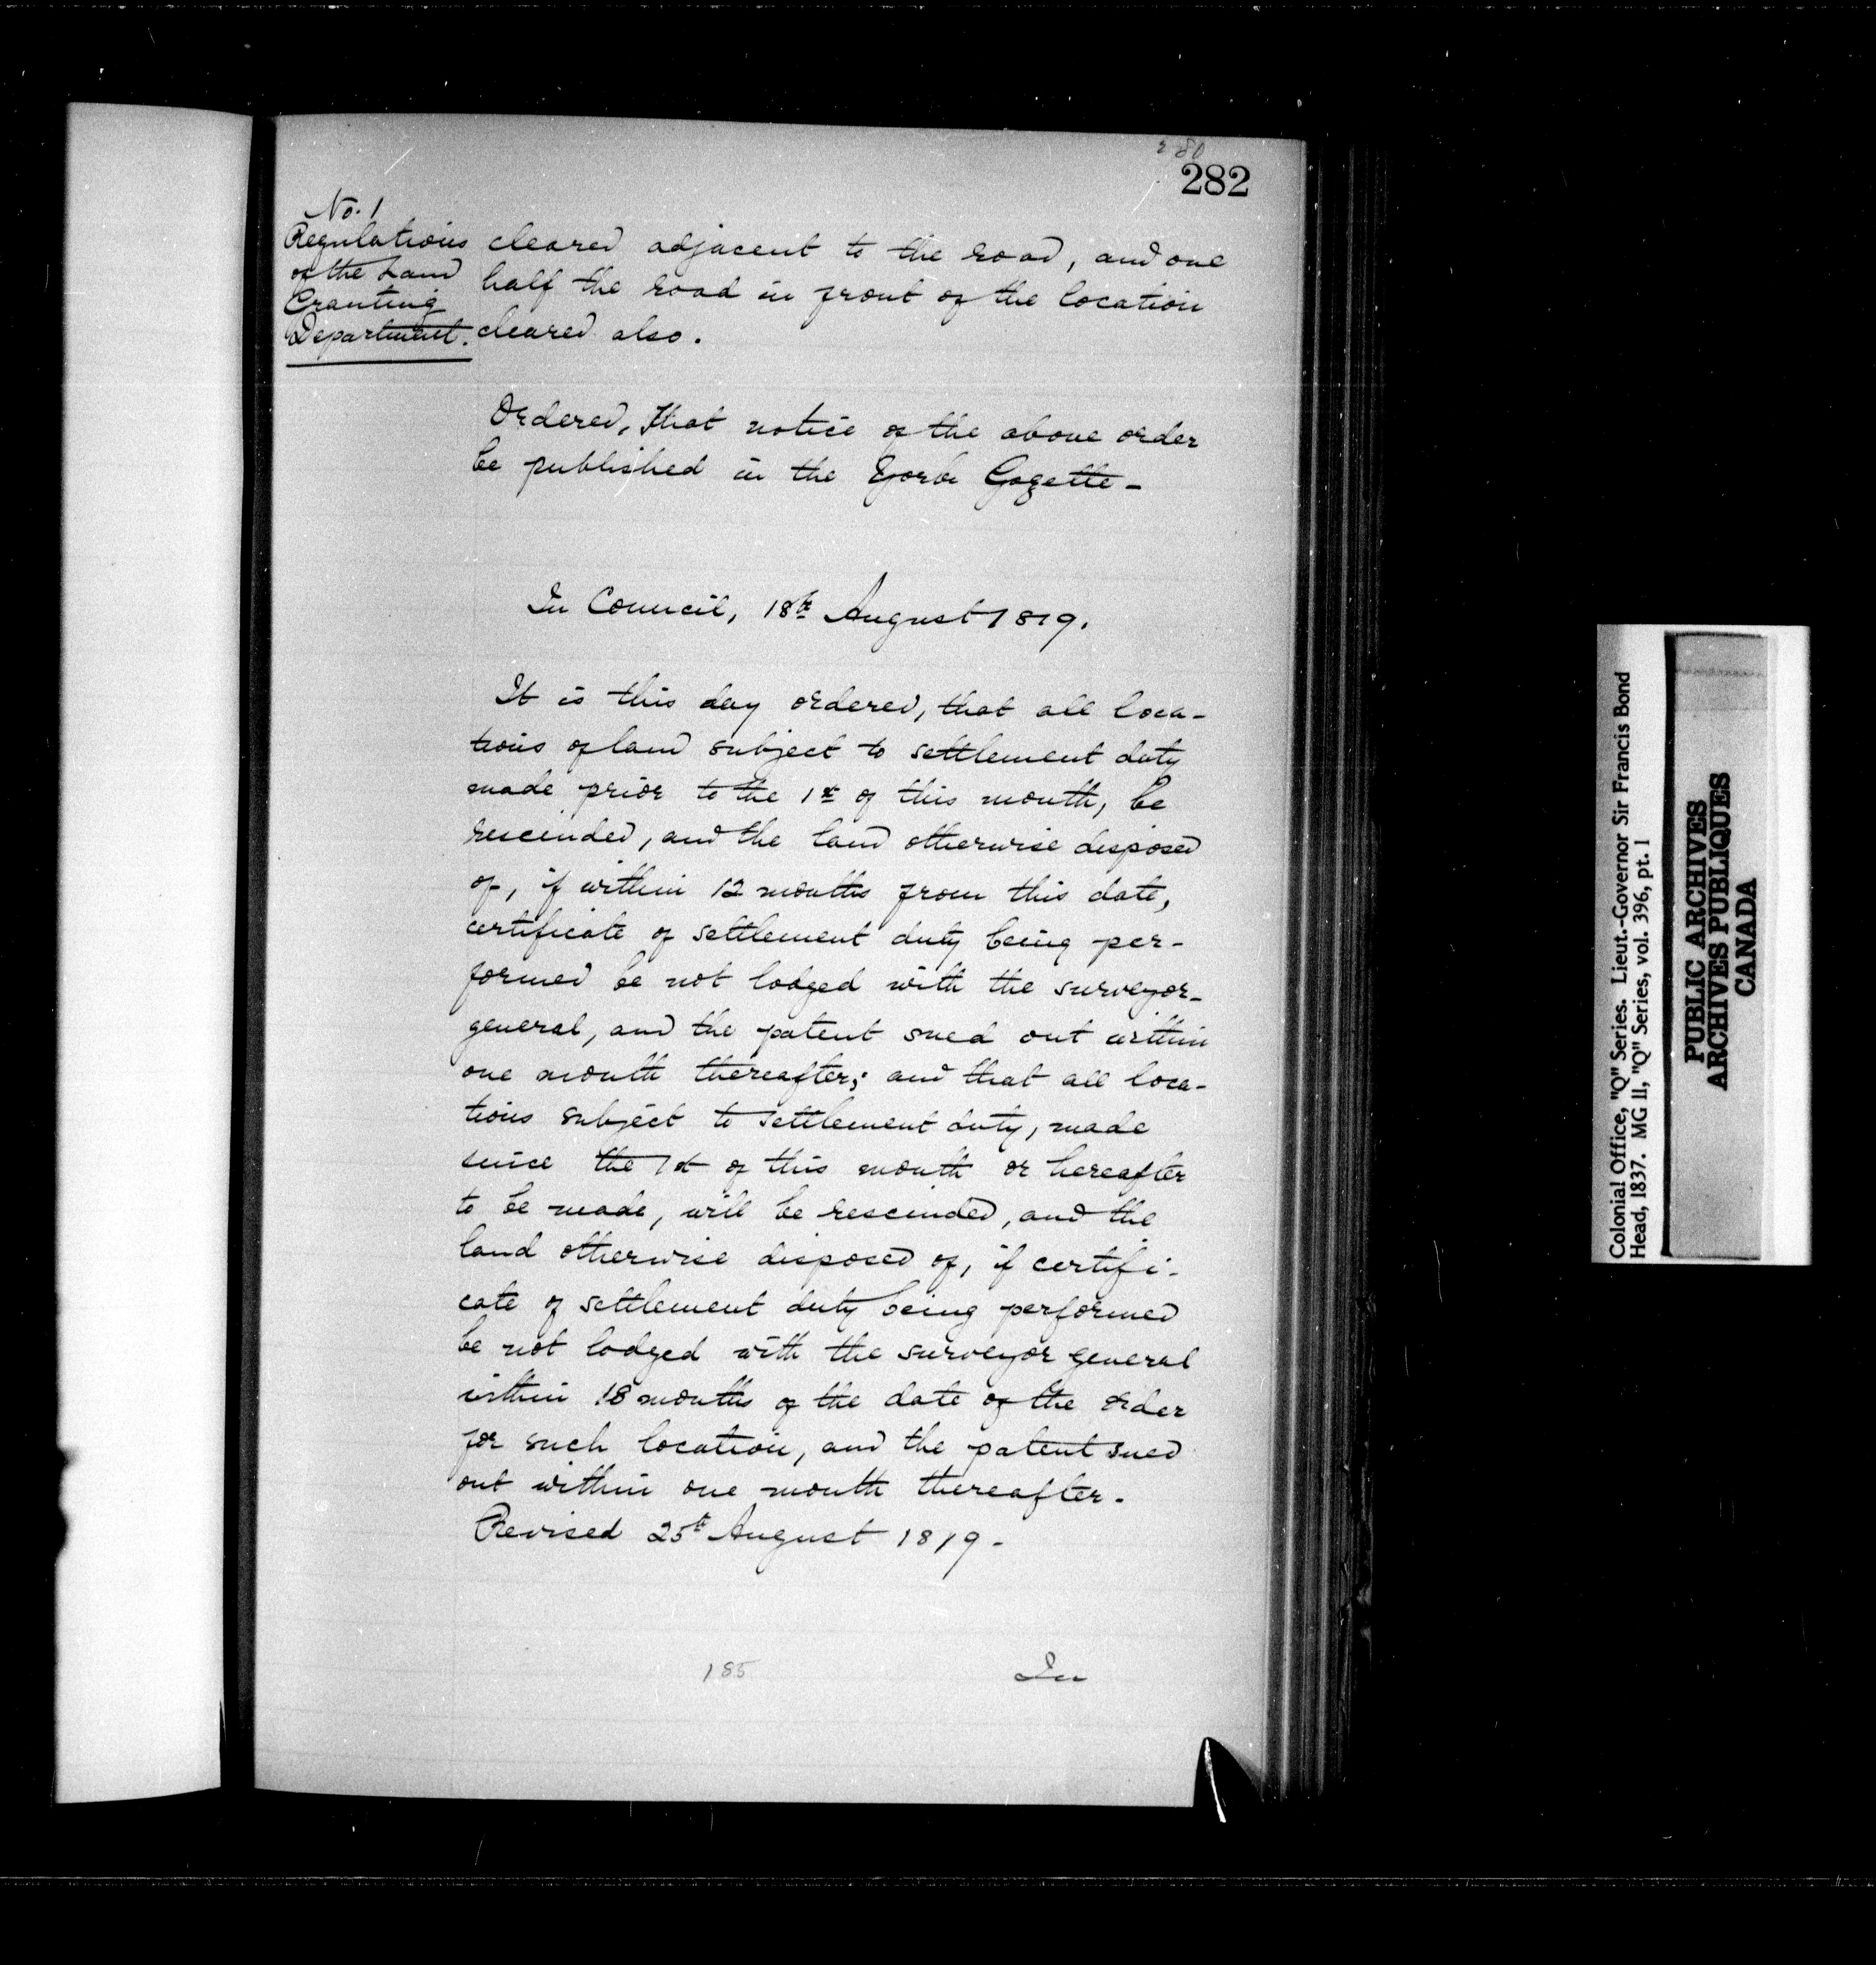 280
282
No. 1
Regulations
of the Land
Granting
Department.
cleared adjacent to the road, and one
half the road in front of the location
cleared also.
Ordered, That notice of the above order
be published in the York Gazette -
In Council, 18th August 1819.
It is this day ordered, that all loca-
tions of land subject to settlement duty
made prior to the 1st of this month, be
rescinded, and the land otherwise disposed
of, if within 12 months from this date,
certificate of settlement duty being per-
formed be not lodged with the surveyor-
general, and the patent sued out within
one month thereafter; and that all loca-
tions subject to settlement duty, made
since the 1st of this month or hereafter
to be made, will be rescinded, and the
land otherwise disposed of, if certifi-
cate of settlement duty being performed
be not lodged with the surveyor general
within 18 months of the date of the order
for such location, and the patent sued
out within one month thereafter.
Revised 25th August 1819.
185
In
Colonial Office, "Q" Series. Lieut.-Governor Sir Francis Bond
Head, 1837. MG 11, "Q" Series, vol. 396, pt. 1
PUBLIC ARCHIVES
ARCHIVES PUBLIQUES
CANADA